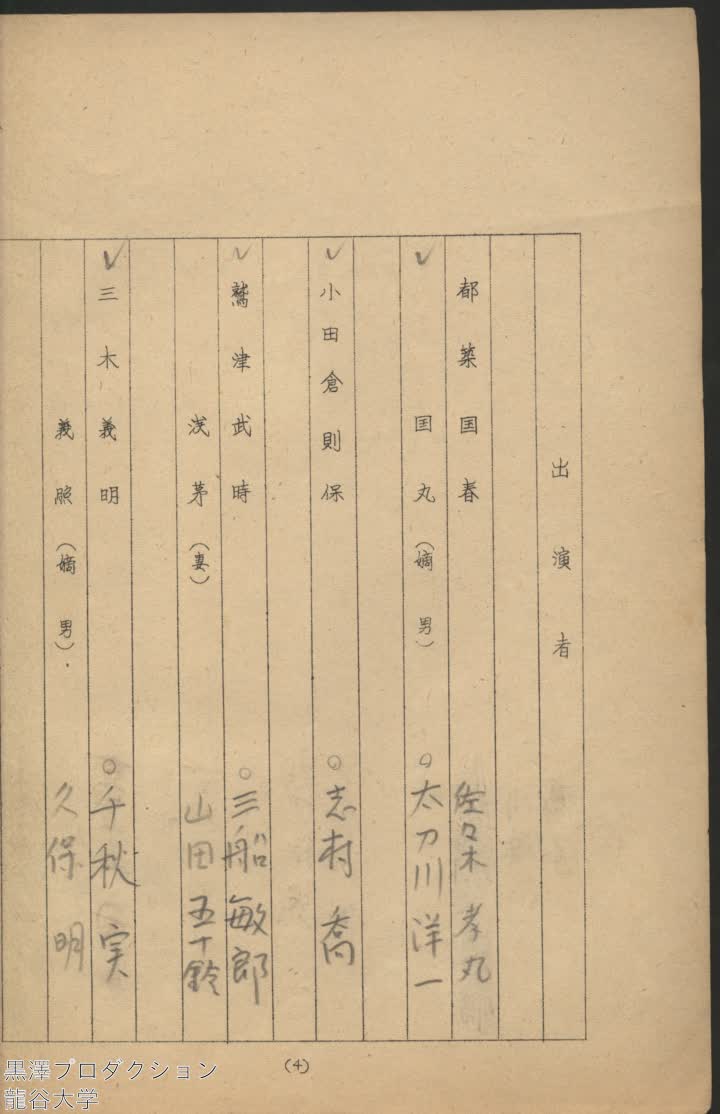 出演者
都築国春 佐々木孝丸
✓ 国丸（嫡男） ○太刀川洋一
✓ 小田倉則保 ○志村喬
✓ 鷲津武時 ○三船敏郎
浅茅（妻） 山田五十鈴
✓ 三木義明 ○千秋実
義照（嫡男）． 久保明
(4)
黒澤プロダクション
龍谷大学